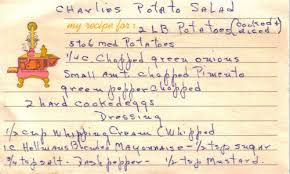 Charlies Potato Salad
my recipe for: 2 LB Potatoes (cooked + diced
5 to 6 med Potatoes
1/4 c. Chopped green onions
Small amt. chopped Pimento
green popper chopped
2 hard cooked eggs
Dressing
1/2 cup Whipping Cream (Whipped
1 c. Hellmans Blended Mayonnaise - 1/2 tsp sugar
3/4 tsp salt - Dash pepper - 1/2 tsp Mustard.